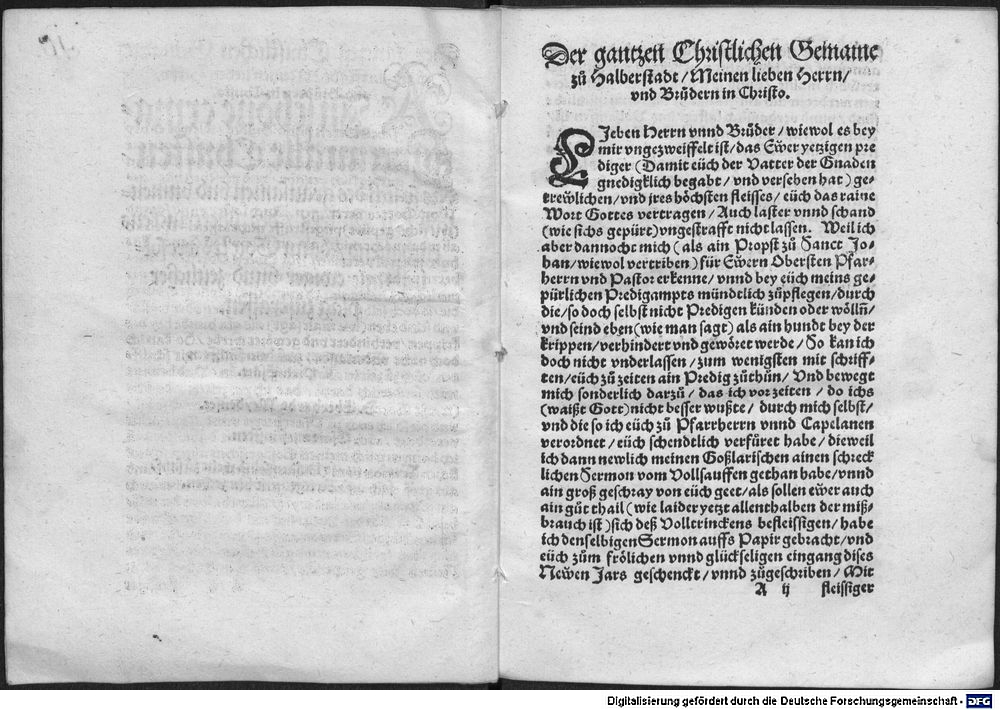 Der gantzen Christlichen Gemaine
zů Halberstadt / Meinen lieben Herrn /
vnd Brůdern in Christo.
LJeben Herrn vnnd Brůder / wiewol es bey
mir vngezweiffelt ist / das Ewer yetzigen pre
diger (Damit eüch der Vatter der Gnaden
gnedigklich begabt / vnd versehen hat) ge-
trewlichen / vnd jres höchsten fleisses / eüch das raine
Wort Gottes vertragen / Auch laster vnnd schand
(wie sichs gepürt) vngestrafft nicht lassen. Weil ich
aber dannocht mich (als ain Propst zů Sanct Jo-
han / wiewol vertriben) für Ewern Obersten Pfar-
herrn vnd Pastor erkenne / vnnd bey eüch meins ge-
pürlichen Predigampts mündtlich zůpflegen / durch
die / so doch selbst nicht Predigen künden oder wölln̄ /
vnd seind eben (wie man sagt) als ain hundt bey der
krippen / verhindert vnd gewöret werde / So kan ich
doch nicht vnderlassen / zum wenigsten mit schriff-
ten / eüch zů zeiten ain Predig zůthůn / Vnd bewegt
mich sonderlich darzů / das ich vor zeiten / do ichs
(waißt Gott) nicht besser wußte / durch mich selbst /
vnd die so ich eüch zů Pfarrherrn vnnd Capelanen
verordnet / eüch schendtlich verfüret habe / dieweil
ich dann newlich meinen Goßlarischen ainen schreck
lichen Sermon vom Vollsauffen gethan habe / vnnd
ain groß geschray von eüch geet / als sollen ewer auch
ain gůt thail (wie laider yetzt allenthalben der miß-
brauch ist) sich deß Volltrinckens befleissigen / habe
ich denselbigen Sermon auffs Papir gebracht / vnd
eüch zům frölichen vnnd glückseligen eingang dises
Newen Jars geschenckt / vnnd zůgeschriben / Mit
A ij fleissiger
Digitalisierung gefördert durch die Deutsche Forschungsgemeinschaft - DFG